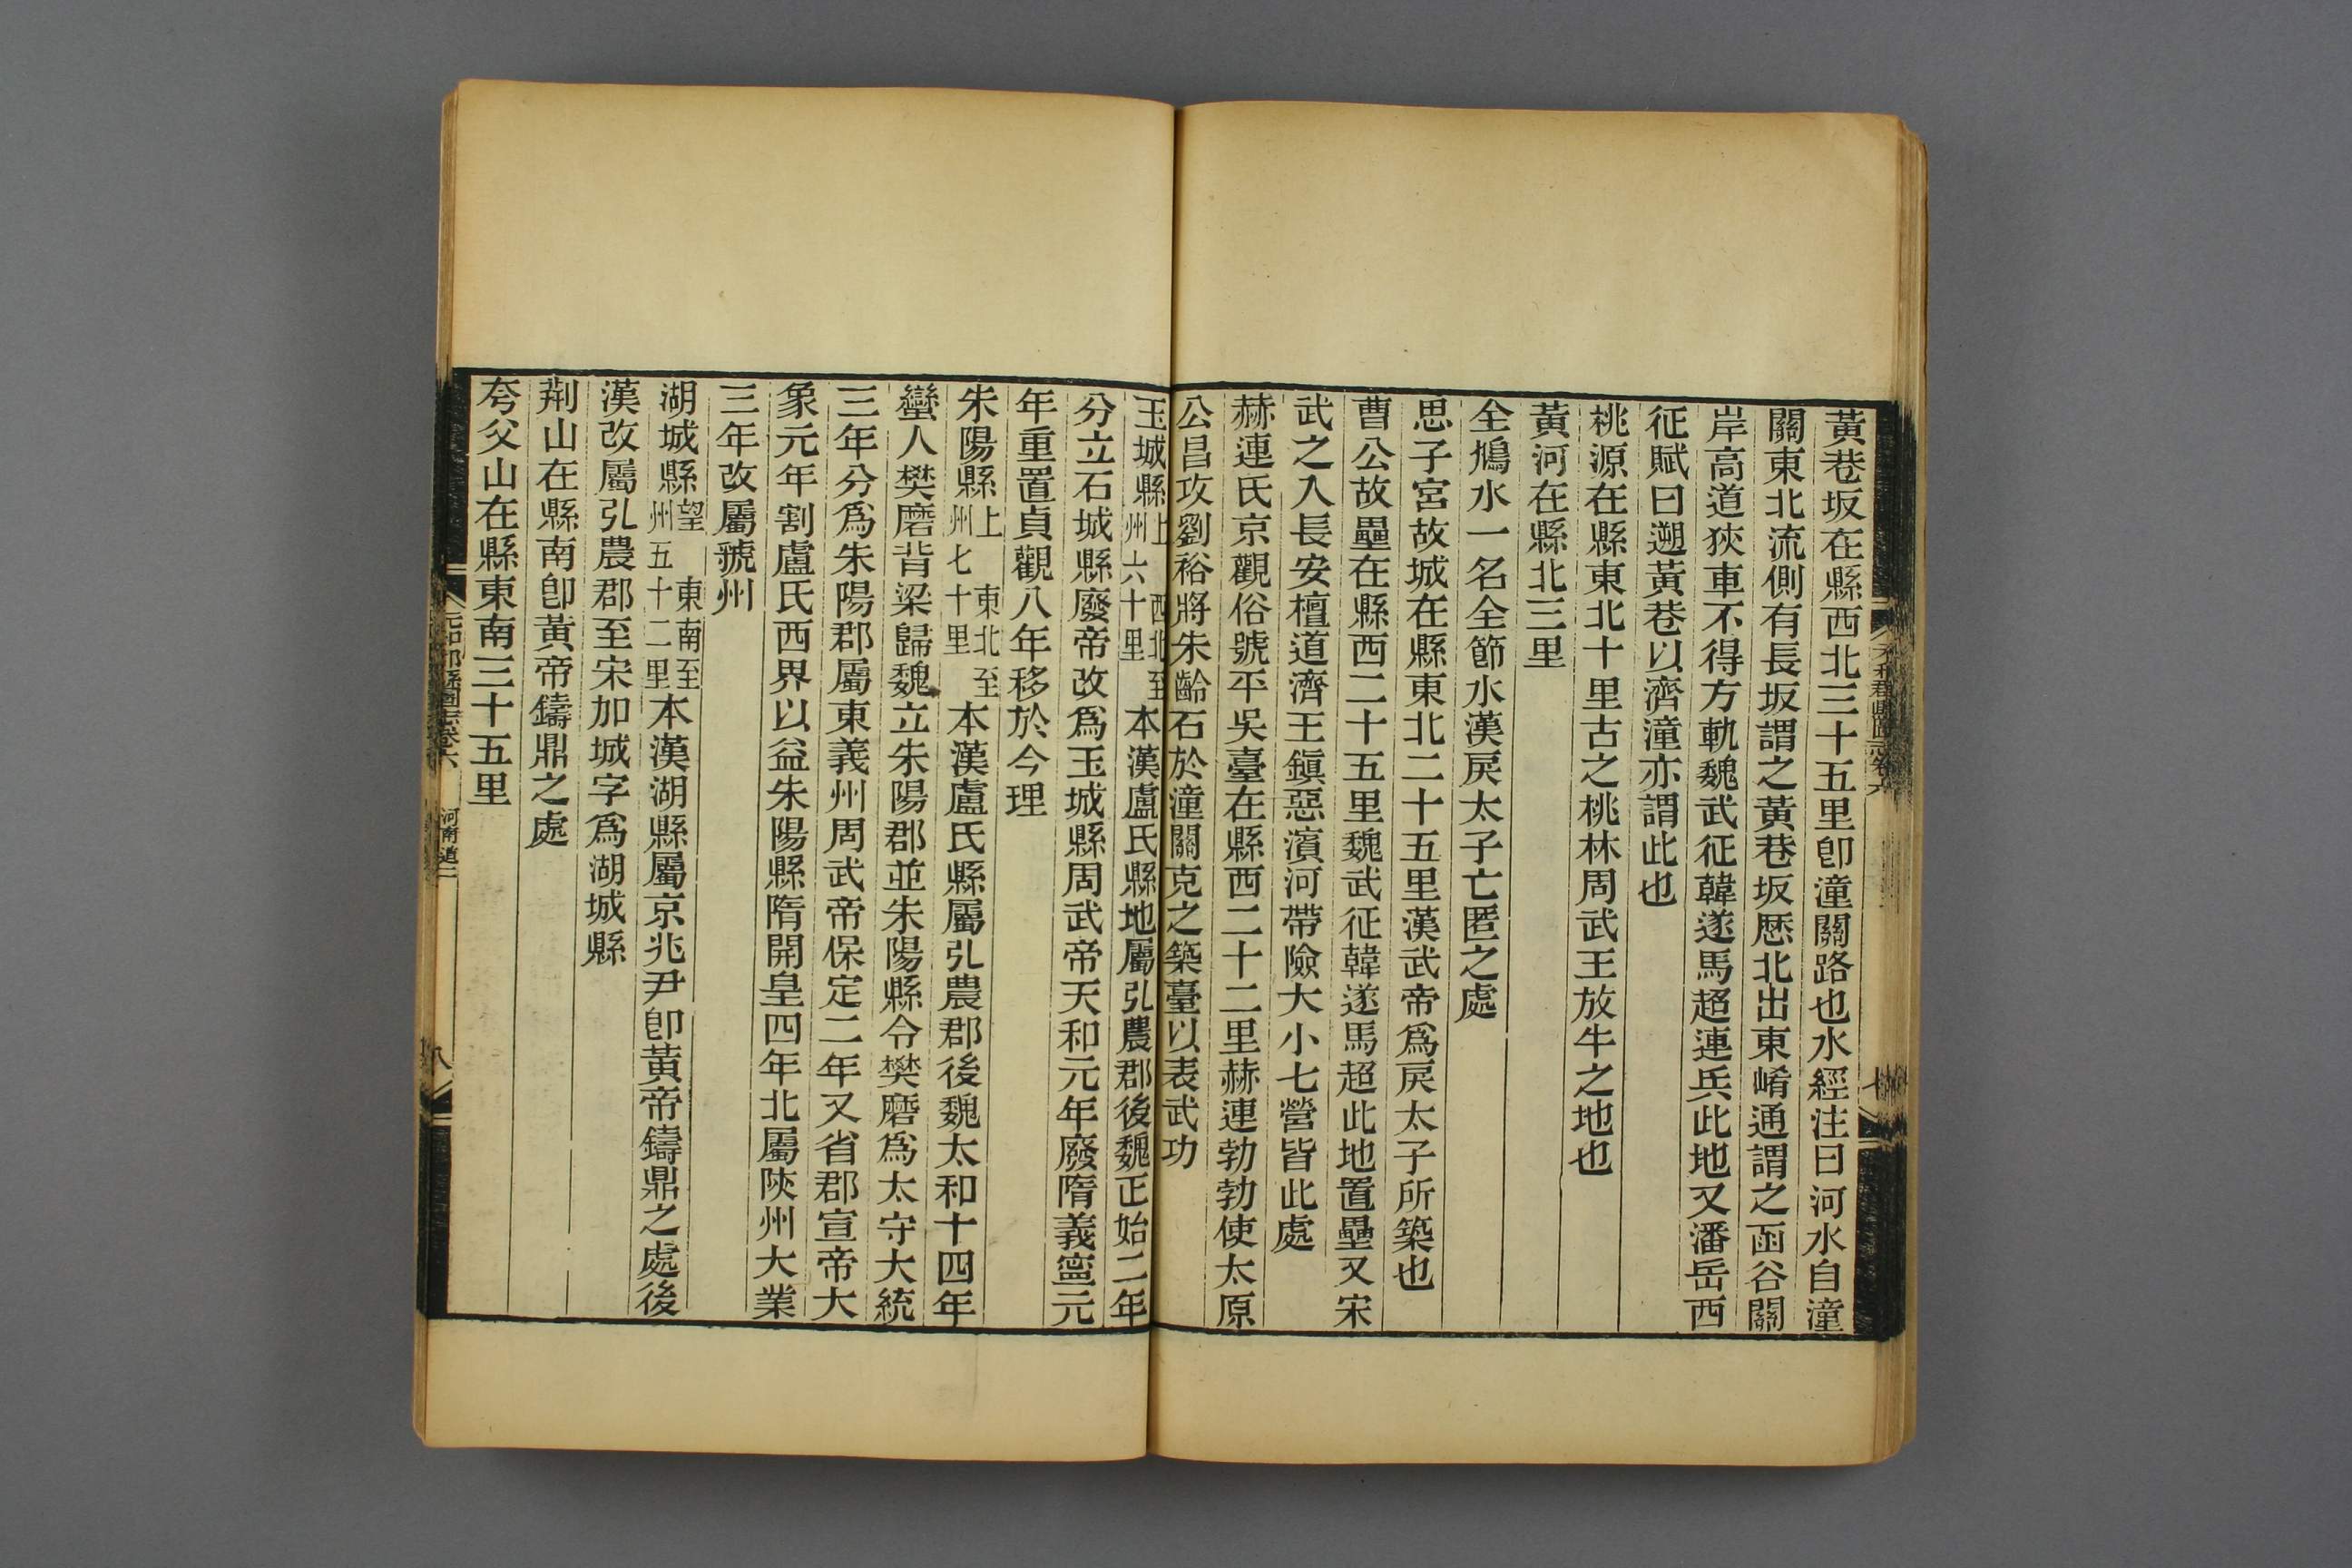 黃巷坂在縣西北三十五里卽潼關路也水經注曰河水自潼
關東北流側有長坂謂之黃巷坂歷北出東崤通謂之函谷關
岸高道狹車不得方軌魏武征韓遂馬超連兵此地又潘岳西
征賦曰遡黃巷以濟潼亦謂此也
桃源在縣東北十里古之桃林周武王放牛之地也
黃河在縣北三里
全鳩水一名全節水漢戾太子亡匿之處
思子宮故城在縣東北二十五里漢武帝爲戾太子所築也
曹公故壘在縣西二十五里魏武征韓遂馬超此地置壘又宋
武之入長安檀道濟王鎭惡濱河帶險大小七營皆此處
赫連氏京觀俗號平吳臺在縣西二十二里赫連勃勃使太原
公昌攻劉裕將朱齡石於潼關克之築臺以表武功
玉城縣上 西北至州六十里 本漢盧氏縣地屬弘農郡後魏正始二年
分立石城縣廢帝改爲玉城縣周武帝天和元年廢隋義寧元
年重置貞觀八年移於今理
朱陽縣上 東北至州七十里 本漢盧氏縣屬弘農郡後魏太和十四年
蠻人樊磨背梁歸魏立朱陽郡並朱陽縣令樊磨爲太守大統
三年分爲朱陽郡屬東義州周武帝保定二年又省郡宣帝大
象元年割盧氏西界以益朱陽縣隋開皇四年北屬陝州大業
三年改屬虢州
湖城縣望 東南至州五十二里 本漢湖縣屬京兆尹卽黃帝鑄鼎之處後
漢改屬弘農郡至宋加城字爲湖城縣
荆山在縣南卽黃帝鑄鼎之處
夸父山在縣東南三十五里
元和郡縣圖志卷六 河南道二 八